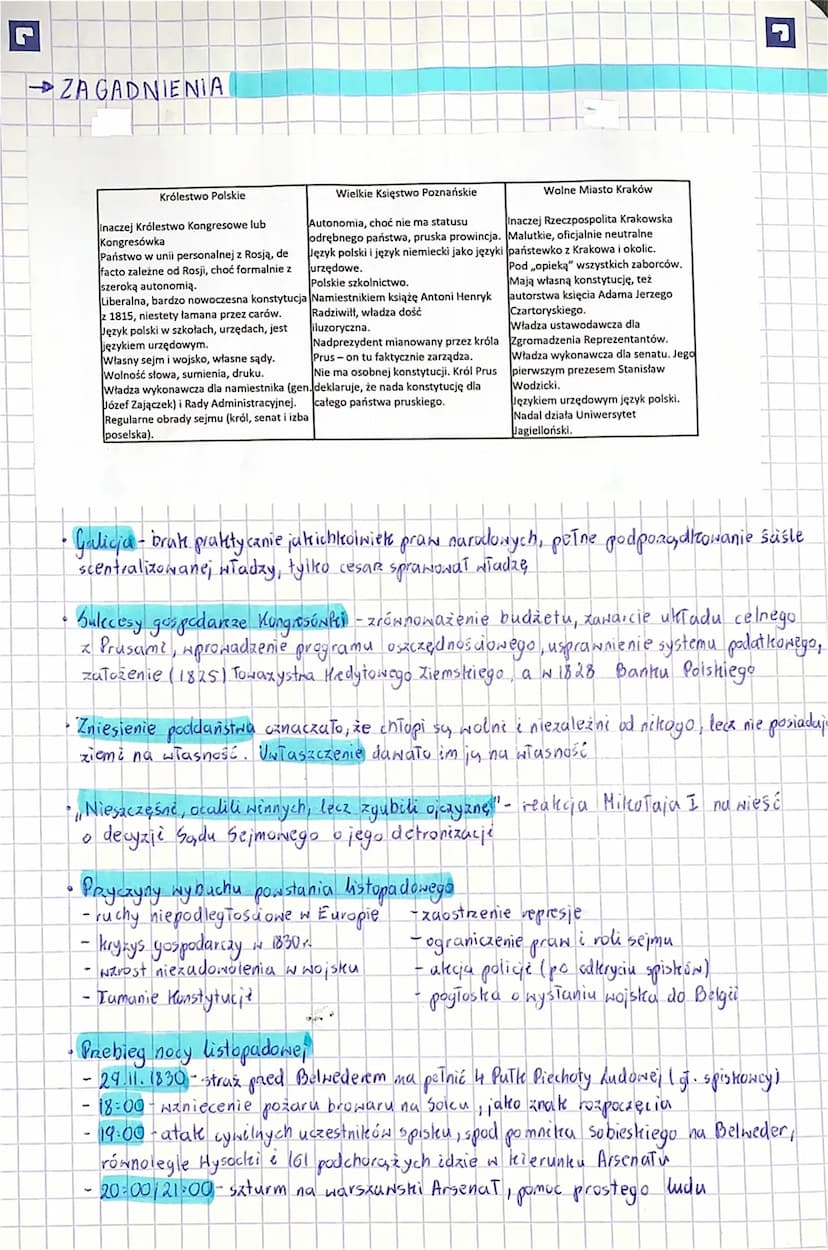 → ZAGADNIENIA
Królestwo Polskie
Inaczej Królestwo Kongresowe lub
Kongresówka
Państwo w unii personalnej z Rosją, de
facto zależne od Rosji, choć formalnie z
szeroką autonomią.
Liberalna, bardzo nowoczesna konstytucja
z 1815, niestety łamana przez carów.
Język polski w szkołach, urzędach, jest
językiem urzędowym.
Własny sejm i wojsko, własne sądy.
Wolność słowa, sumienia, druku.
Władza wykonawcza dla namiestnika (gen.
Józef Zajączek) i Rady Administracyjnej.
Regularne obrady sejmu (król, senat i izba
poselska).
Wielkie Księstwo Poznańskie
Autonomia, choć nie ma statusu
odrębnego państwa, pruska prowincja.
Język polski i język niemiecki jako języki
urzędowe.
Polskie szkolnictwo.
Namiestnikiem książę Antoni Henryk
Radziwiłł, władza dość
iluzoryczna.
Nadprezydent mianowany przez króla
Prus – on tu faktycznie zarządza.
Nie ma osobnej konstytucji. Król Prus
deklaruje, że nada konstytucję dla
całego państwa pruskiego.
Wolne Miasto Kraków
Inaczej Rzeczpospolita Krakowska
Malutkie, oficjalnie neutralne
państewko z Krakowa i okolic.
Pod „opieką" wszystkich zaborców.
Mają własną konstytucję, też
autorstwa księcia Adama Jerzego
Czartoryskiego.
Władza ustawodawcza dla
Zgromadzenia Reprezentantów.
Władza wykonawcza dla senatu. Jego
pierwszym prezesem Stanisław
Wodzicki.
Językiem urzędowym język polski.
Nadal działa Uniwersytet
Jagielloński.
• Galicja - brak praktycznie jakichkolwiek praw narodowych, pełne podporządkowanie ściśle
scentralizowanej władzy, tylko cesarz sprawował władzę
• Sukcesy gospodarcze Kongresówki - zrównoważenie budżetu, zawarcie układu celnego
z Prusami, wprowadzenie programu oszczędnościowego, usprawnienie systemu podatkowego,
założenie (1825) Towarzystwa Kredytowego Ziemskiego, a w 1828 Banku Polskiego
• Zniesienie poddaństwa oznaczało, że chłopi są wolni i niezależni od nikogo, lecz nie posiadają
ziemi na własność. Uwłaszczenie dawało im ją na własność
• „Nieszczęśni, ocalili winnych, lecz zgubili ojczyznę" - reakcja Mikołaja I na wieść
o decyzji Sądu Sejmowego o jego detronizacji
• Przyczyny wybuchu powstania listopadowego
- ruchy niepodległościowe w Europie
- kryzys gospodarczy w 1830r.
- wzrost niezadowolenia w wojsku
- łamanie Konstytucji
- zaostrzenie represje
- ograniczenie praw i roli sejmu
- akcja policji (po odkryciu spisków)
- pogłoska o wysłaniu wojska do Belgii
• Przebieg nocy listopadowej
- 29.11.1830 - straż przed Belwederem ma pełnić 4 Pułk Piechoty Ludowej (gł. spiskowcy)
- 18:00 - wzniecenie pożaru browaru na Solcu, jako znak rozpoczęcia
- 19:00 - atak cywilnych uczestników spisku, spod pomnika Sobieskiego na Belweder,
równolegle Wysocki i 161 podchorążych idzie w kierunku Arsenału
- 20:00/21:00 - szturm na warszawski Arsenał, pomoc prostego ludu